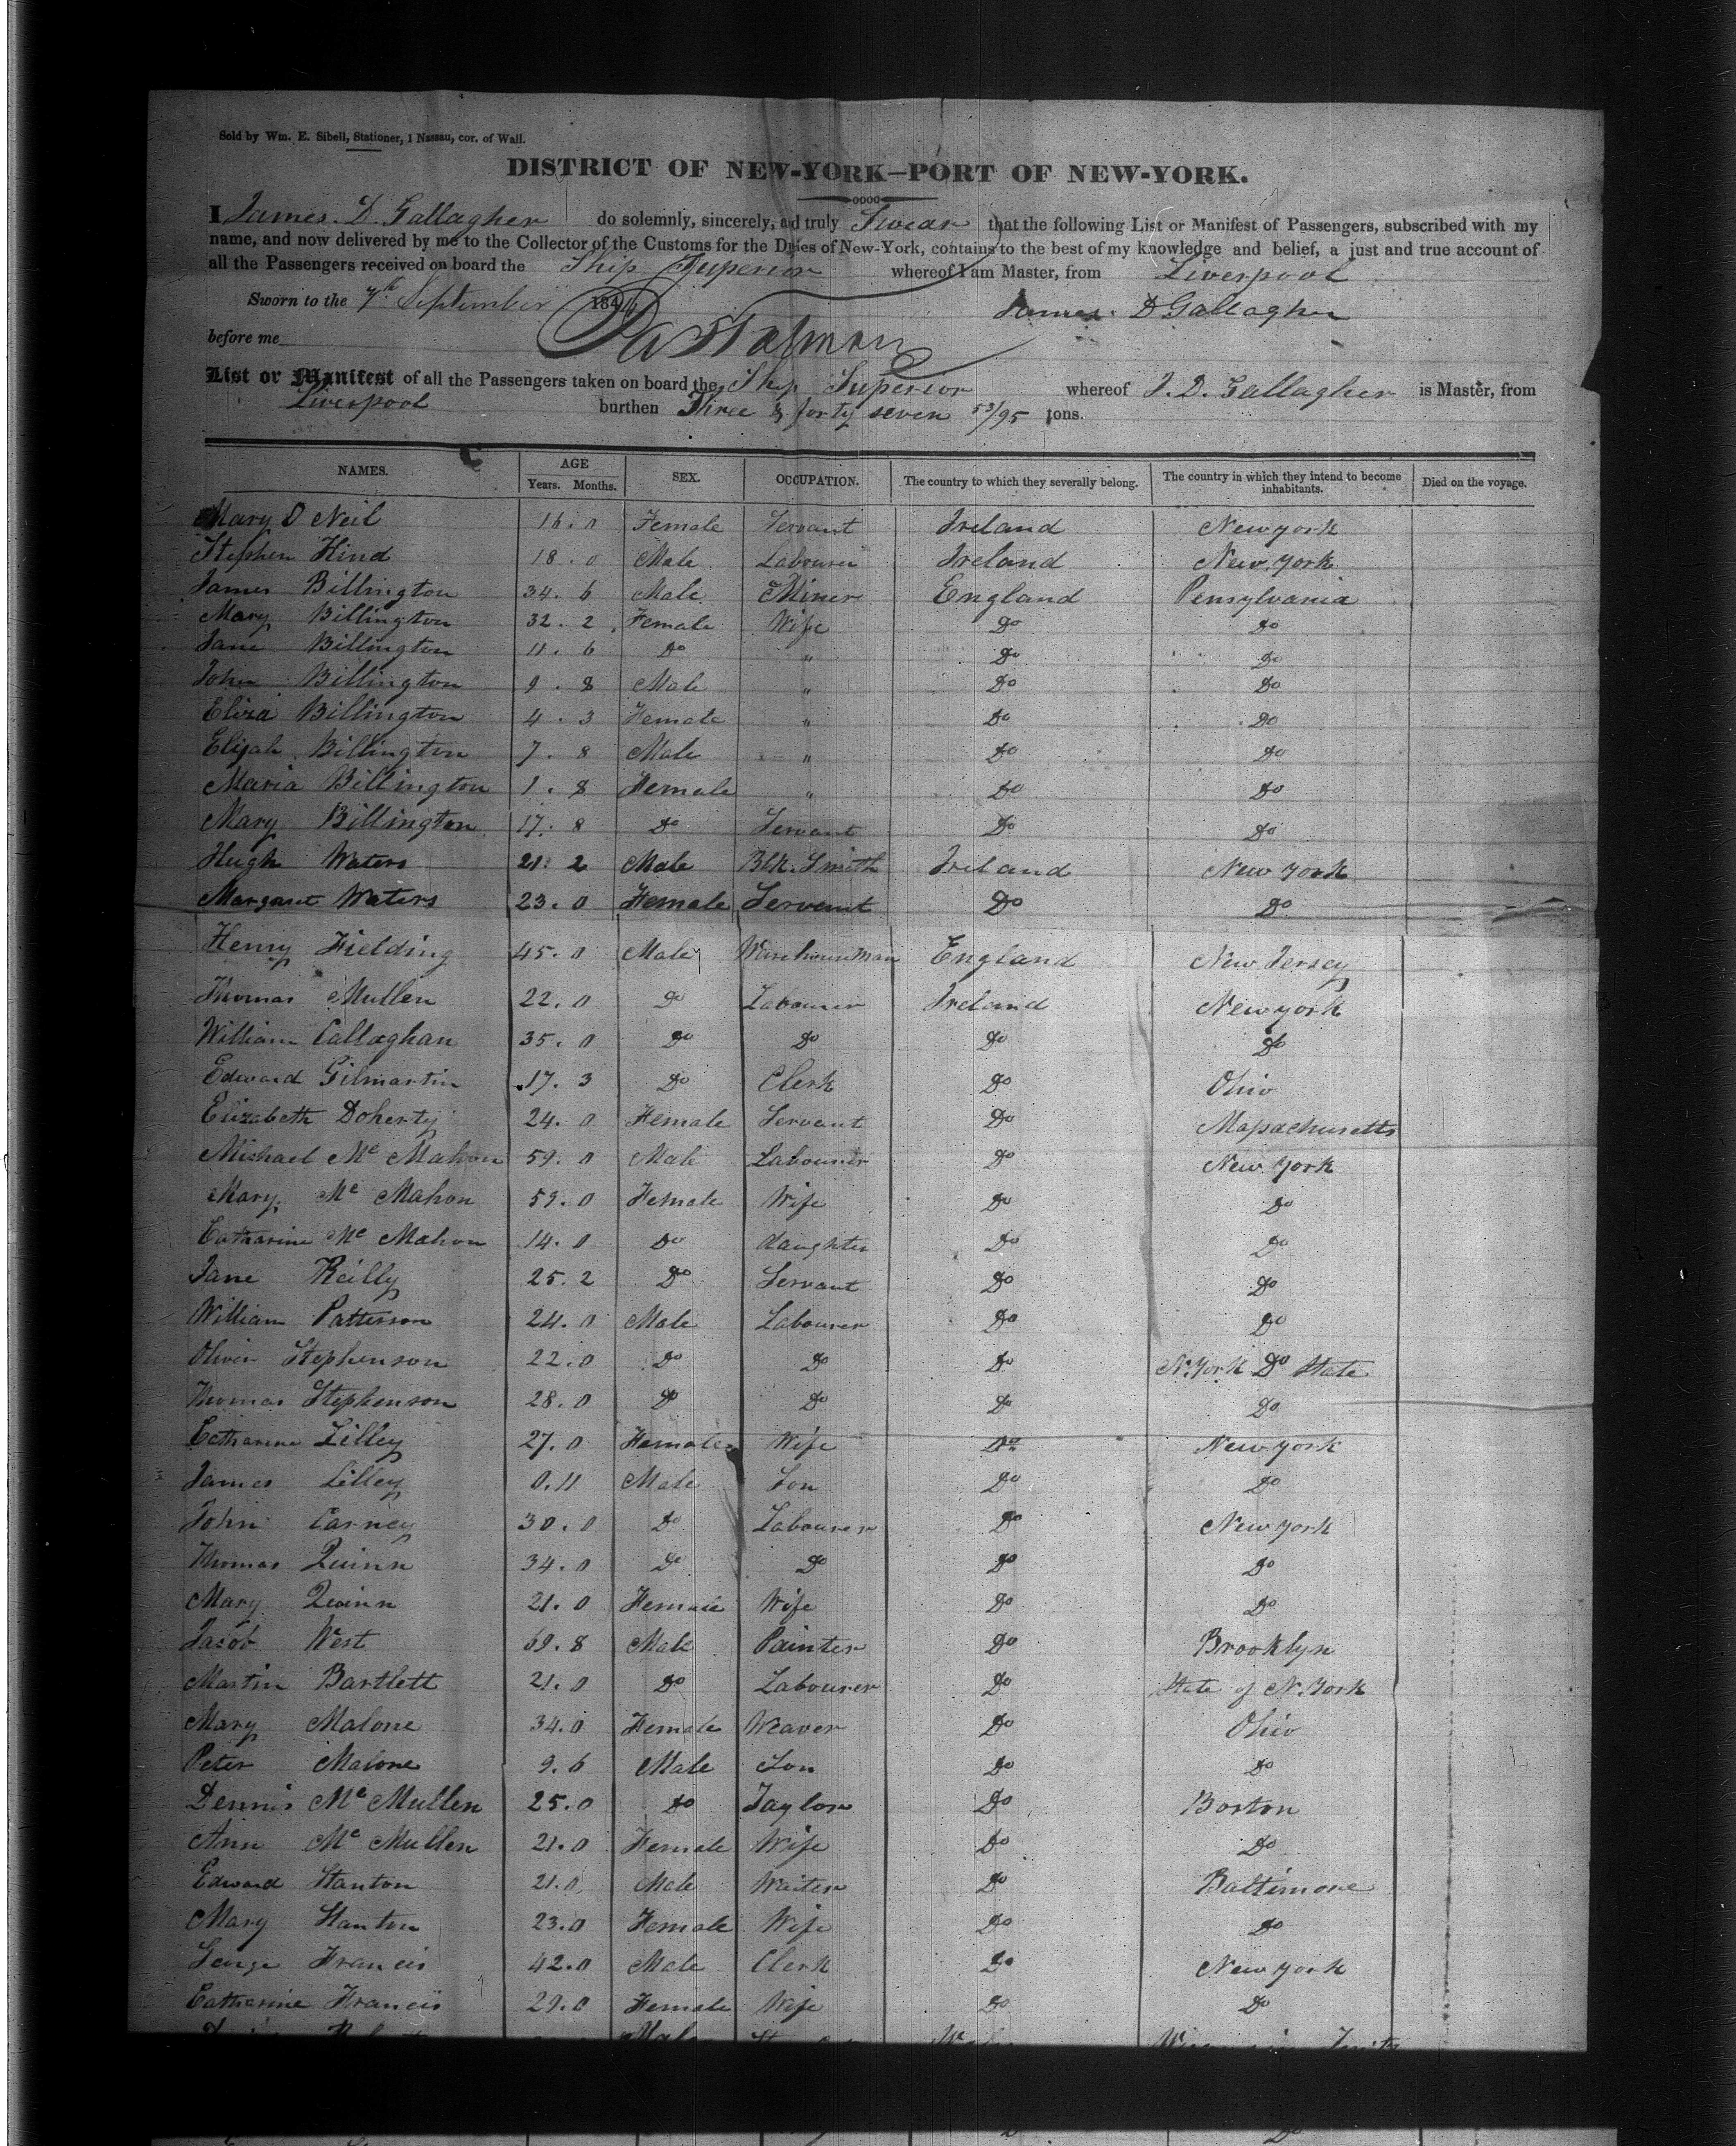 Sold by Wm. E. Sibell, Stationer, 1 Nassau, cor. of Wall.
DISTRICT OF NEW-YORK—PORT OF NEW-YORK.
I James. D. Gallagher do solemnly, sincerely, and truly Swear that the following List or Manifest of Passengers, subscribed with my
name, and now delivered by me to the Collector of the Customs for the Duies of New-York, contains to the best of my knowledge and belief, a just and true account of
all the Passengers received on board the Ship Superior whereof I am Master, from Liverpool
Sworn to the 7th September 184 James. D Gallagher
before me
List or Manifest of all the Passengers taken on board the Ship Superior whereof J. D. Gallagher is Master, from
Liverpool burthen Three & forty seven 53/95 tons.
NAMES. AGE SEX. OCCUPATION. The country to which they severally belong. The country in which they intend to become inhabitants. Died on the voyage.
Years. Months.
Mary O Neil 16. 0 Female Servant Ireland New york
Stephen Hind 18. 0 Male Labourer Ireland New. York
James Billington 34. 6 Male Miner England Pensylvania
Mary Billington 32. 2 Female Wife Do Do
Jane Billington 11. 6 Do " Do Do
John Billington 9. 8 Male " Do Do
Eliza Billington 4. 3 Female " Do Do
Elijah Billington 7. 8 Male " Do Do
Maria Billington 1. 8 Female " Do Do
Mary Billington 17. 8 Do Servant Do Do
Hugh Waters 21. 2 Male Blk. Smith Ireland New York
Margaret Waters 23. 0 Female Servant Do Do
Henry Fielding 45. 0 Male Warehouseman England New Jersey
Thomas Mullen 22. 0 Do Labourer Ireland New york
William Callaghan 35. 0 Do Do Do Do
Edward Gilmartin 17. 3 Do Clerk Do Ohio
Elizabeth Doherty 24. 0 Female Servant Do Massachusetts
Michael Mc Mahon 59. 0 Male Labourer Do New York
Mary Mc Mahon 59. 0 Female Wife Do Do
Catharine Mc Mahon 14. 0 Do daughter Do Do
Jane Reilly 25. 2 Do Servant Do Do
William Patterson 24. 0 Male Labourer Do Do
Oliver Stephenson 22. 0 Do Do Do N. York Do State
Thomas Stephenson 28. 0 Do Do Do Do
Catharine Lilley 27. 0 Female Wife Do New york
James Lilley 0. 11 Male Son Do Do
John Carney 30. 0 Do Labourer Do New York
Thomas Quinn 34. 0 Do Do Do Do
Mary Quinn 21. 0 Female Wife Do Do
Jacob West 69. 8 Male Painter Do Brooklyn
Martin Bartlett 21. 0 Do Labourer Do State of N. York
Mary Malone 34. 0 Female Weaver Do Ohio
Peter Malone 9. 6 Male Son Do Do
Dennis Mc Mullen 25. 0 Do Taylor Do Boston
Ann Mc Mullen 21. 0 Female Wife Do Do
Edward Stanton 21. 0 Male Waiter Do Baltimore
Mary Stanton 23. 0 Female Wife Do Do
George Francis 42. 0 Male Clerk Do New york
Catharine Francis 29. 0 Female Wife Do Do
Male